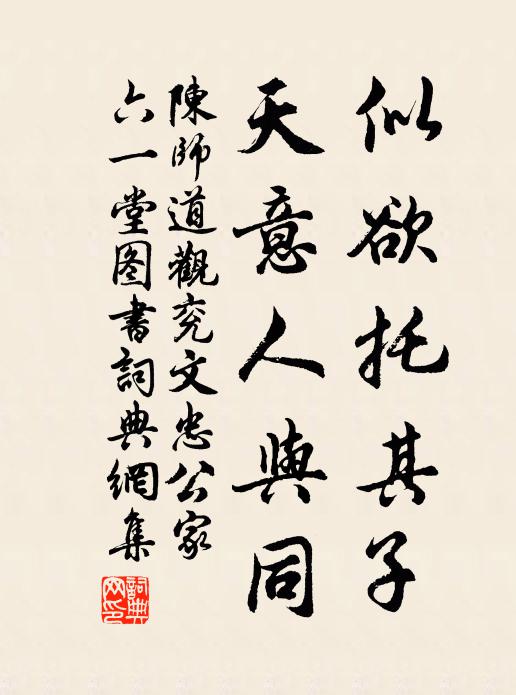 似欲托其子
天意人與同
陳師道觀兖文忠公家
六一堂图書詞典網集
詞典
网印